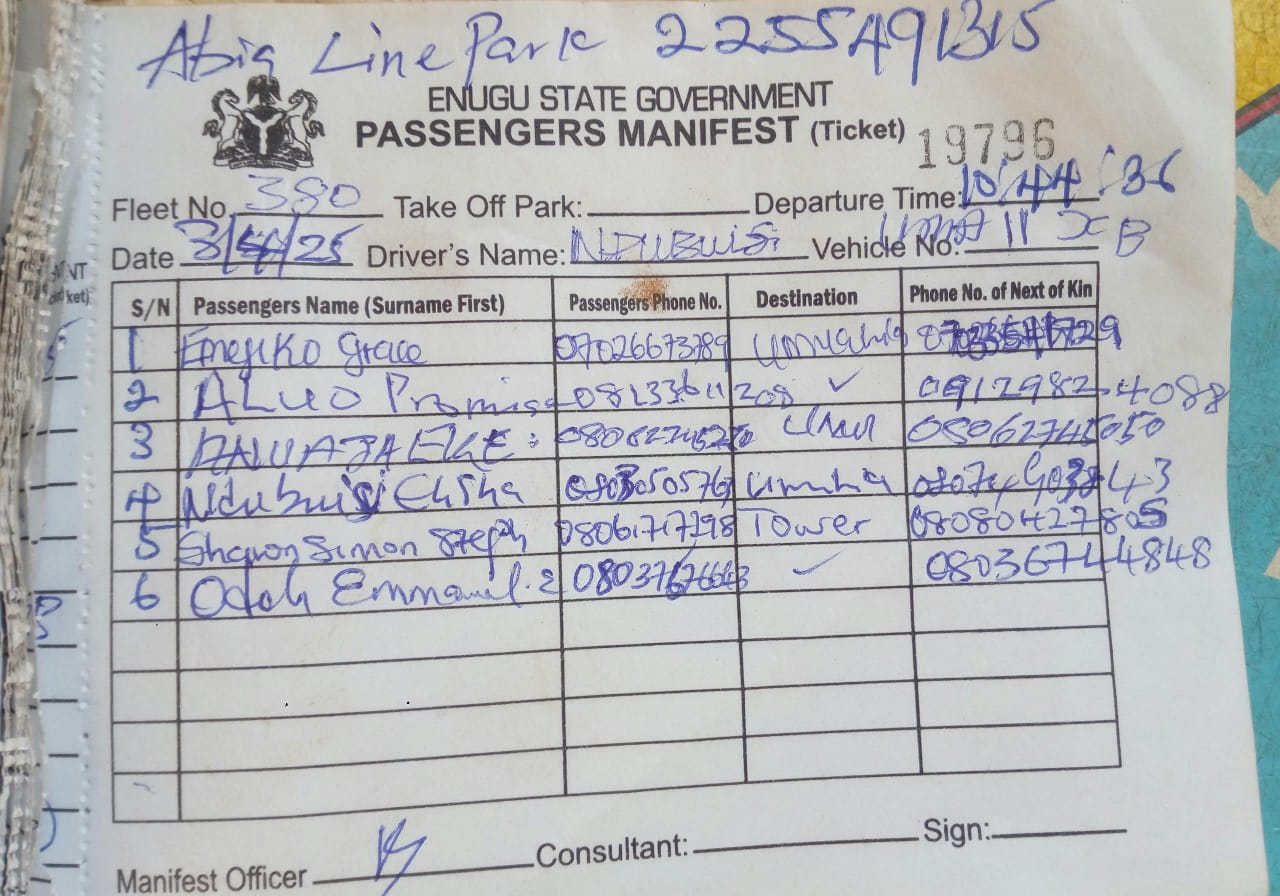 Abia Line Park 2255491315
ENUGU STATE GOVERNMENT
PASSENGERS MANIFEST (Ticket) 19796
Fleet No. 380 Take Off Park: Departure Time: 10:44:36
Date 3/4/25 Driver's Name: NDUBUISI Vehicle No. 11 XB
S/N Passengers Name (Surname First) Passengers Phone No. Destination Phone No. of Next of Kin
1 Emejiko Grace 07026673789 Umuahia
2 ALUO Promise 08133611208 ✓ 09129824088
3 EKE: 08062745050
4 Ndubuisi Elisha 08030505767 Umuahia
5 Sharon Simon 08061717198 Tower 08080427805
6 Odoh Emmanuel. E ✓ 08036744848
Manifest Officer Consultant: Sign: